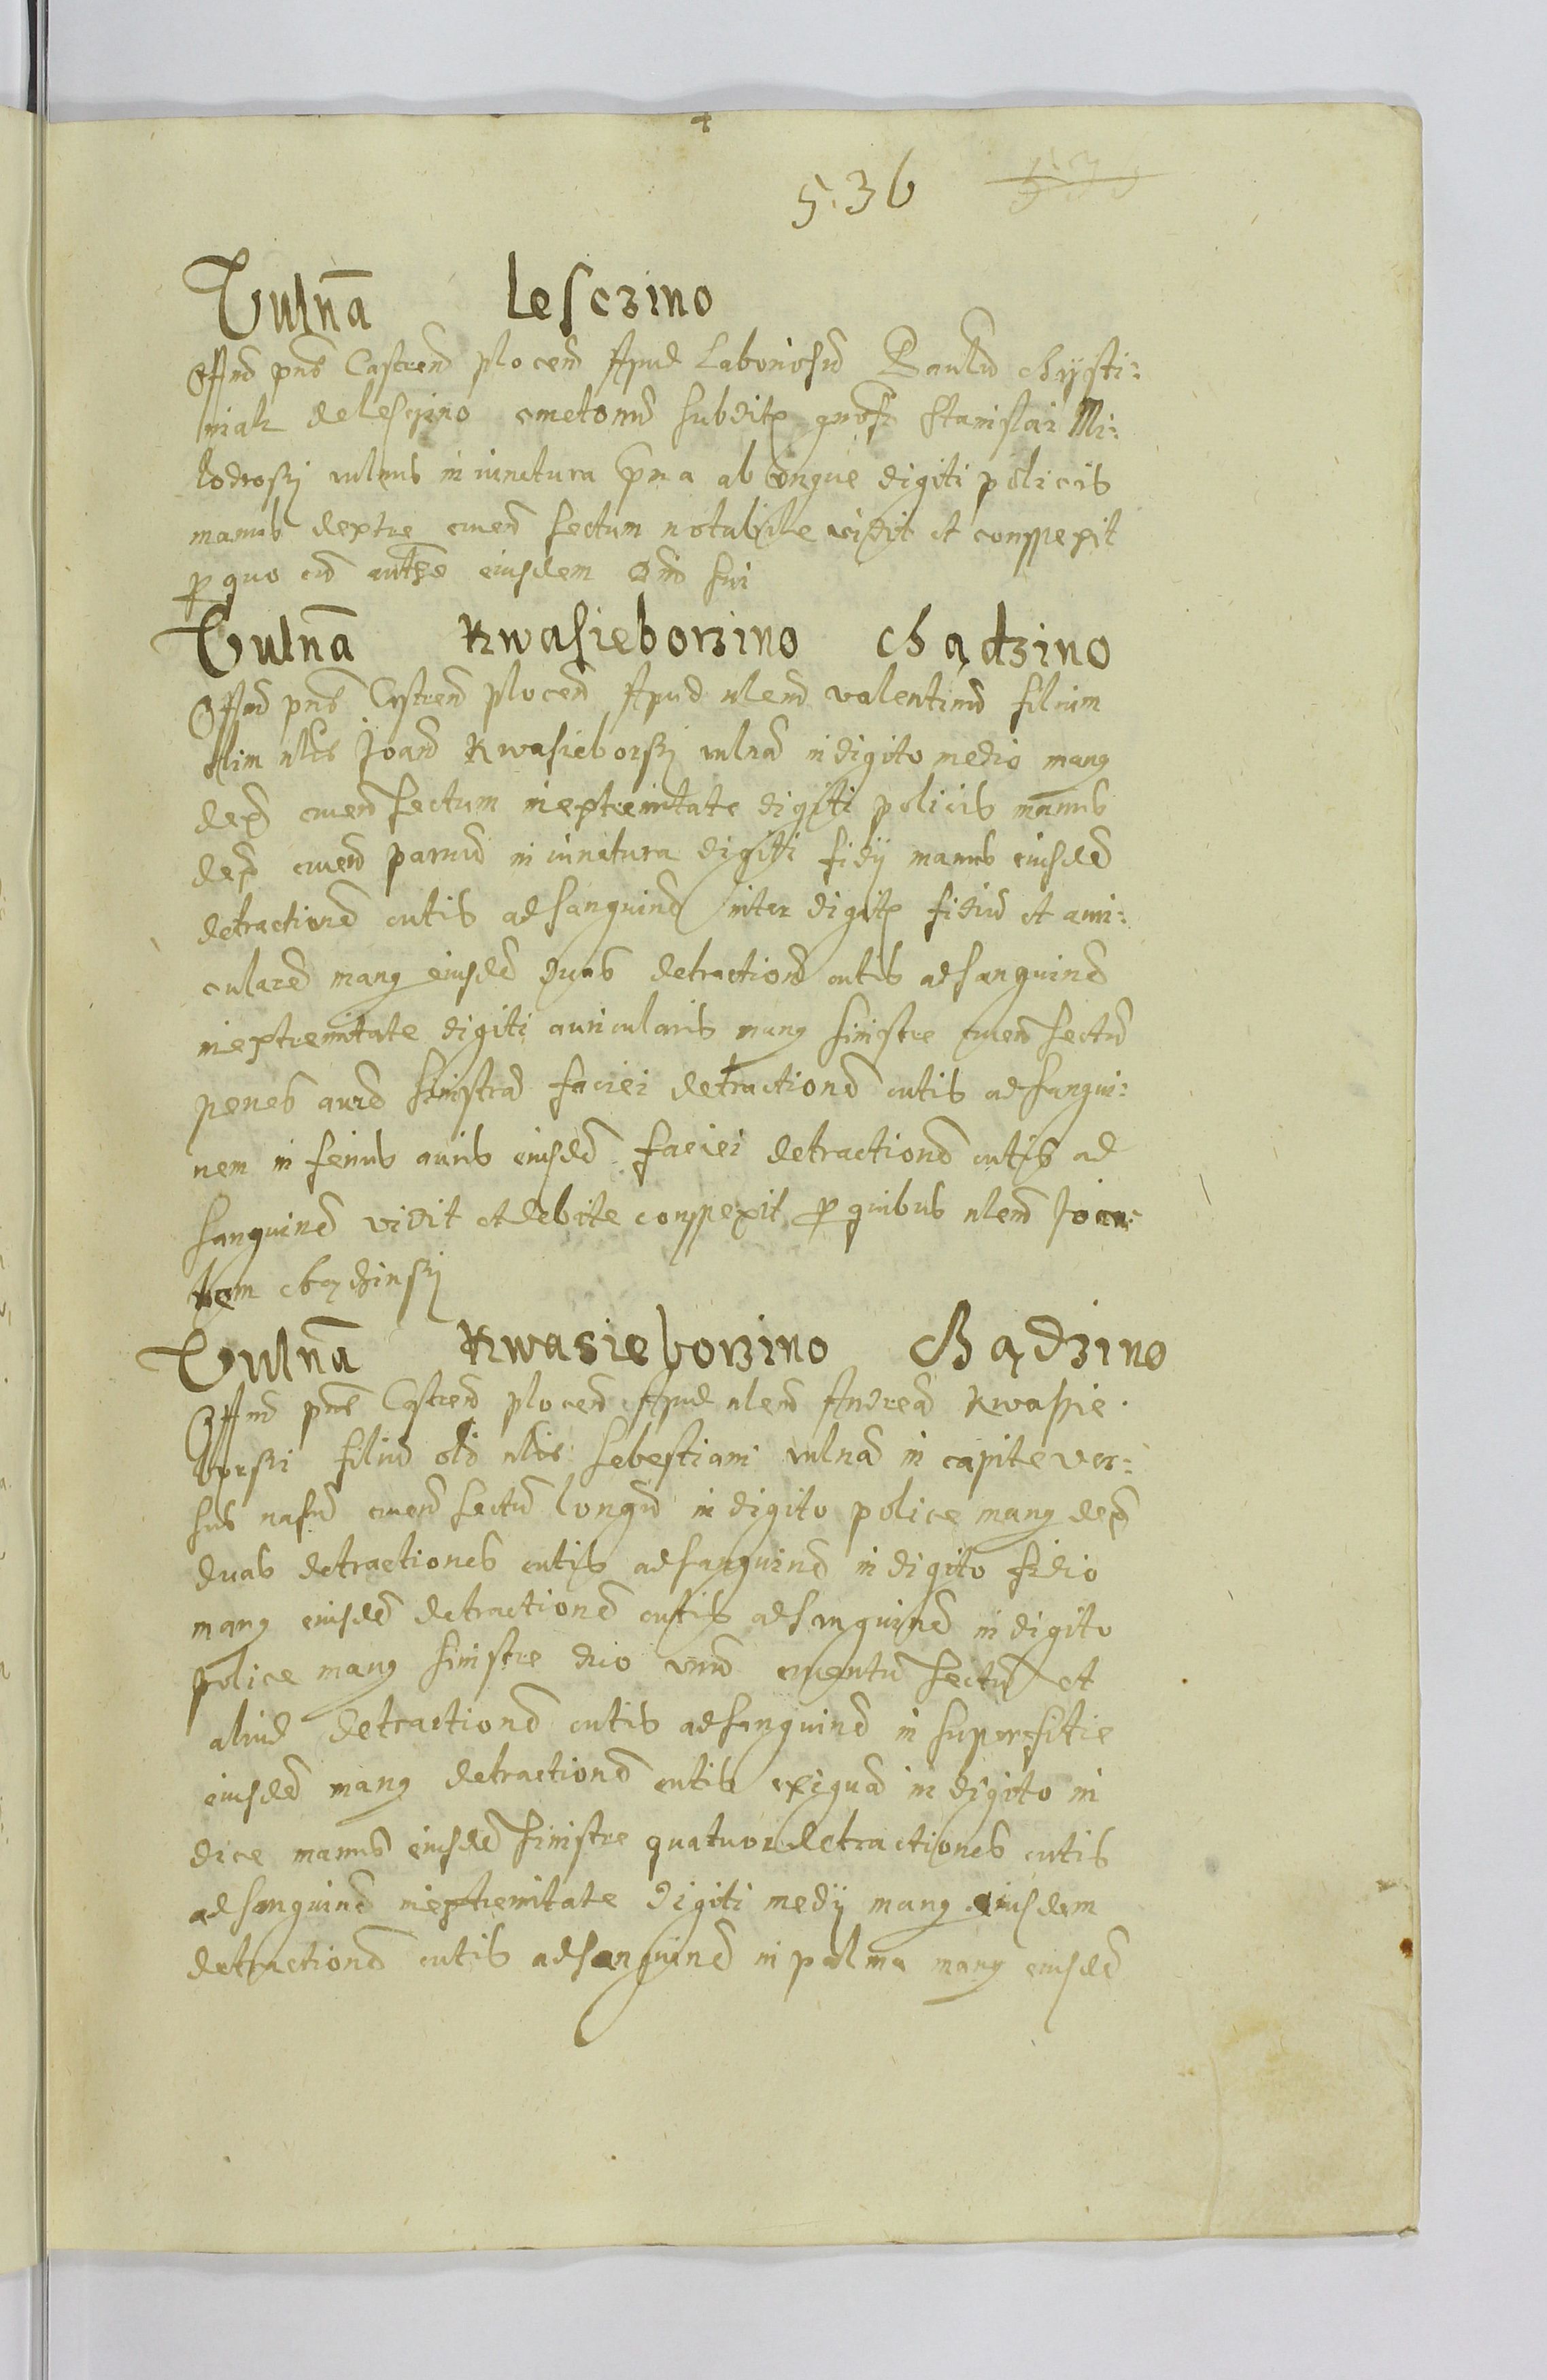 536
Vulnā Lesczino
Offm pns Castren plocen Apud Laboriosū Paulū Chÿsti:
niak de Lesczino cmetonū subditū gnosi Stanislai Mi:
lodroski vulnus in iunctura prima ab ungue digiti policis
manus dextre cruen sectum notabile vidit et conspexit
p quo cū authōē eiusdem Dnū sui
Vulnā Kwasieborzino Chądzino
Offm pns Castren plocen Apud nlem valentinū filium
olim nlis Joan Kwasieborski vulna in digito medio manꝰ
dex cruen sectum in extremitate digiti policis manus
dex cruen parvū in iunctura digiti fidÿ manus eiusdē
detractionē cutis ad sanguinē inter digitū fidiū et auri:
cularē manꝰ eiusdē duas detractionē cutis ad sanguinē
in extremitate digiti auricularis manꝰ sinistre cruen sectū
penes aurē sinistrā faciei detractionē cutis ad sangui:
nem inferius auris eiusdē faciei detractionē cutis ad
sanguinē vidit et debite conspexit p quibus nlem Joan:
nem chądzinski
Vulnā Kwasieborzino Chądzino
Offm pns Castren plocen Apud nlem Andreā Kwasie.
borski filiū oli nlis Sebestiani vulnā in capite ver:
sus nasū cruen sectū longū in digito police manꝰ dex
duas detractiones cutis ad sanguinē in digito fidio
manꝰ eiusdē detractionē cutis ad sanguinē in digito
police manꝰ sinistre duo unū cruentū sectū et
aliud detractionē cutis ad sanguinē in superfitie
eiusdē manꝰ detractionē cutis exiguā in digito in
dice manus eiusdē sinistre quatuor detractiones cutis
ad sanguinē in extremitate digiti medÿ manꝰ eiusdem
detractionē cutis ad sanguinē in palma manꝰ eiusdē